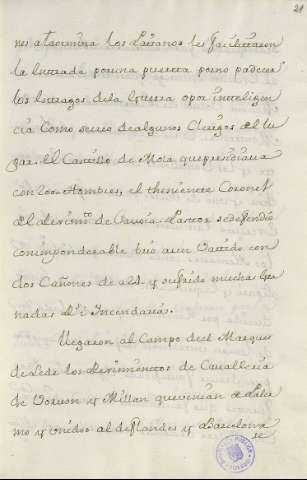 21
nes a Taormina los Paisanos les facilitaron
la entrada por una puerta por no padecer
los estragos de la Guerra o por inteligen
cia como suce de algunos Clerigos del lu
gar. el Castillo de Mola que presidiava
con 200. Hombres, el theniente Coronel
del
se defendio
con imponderable brio aun Vatido con
dos Cañones de a 24. y sufrido muchas Gra
nadas R.s è Incendarias.
Llegaron al Campo del Marques
de Lede los Reximientos de Cavalleria
de Vorvon y Millan que venian de Paler
mo y unidos al de Flandes y Barcelona
se